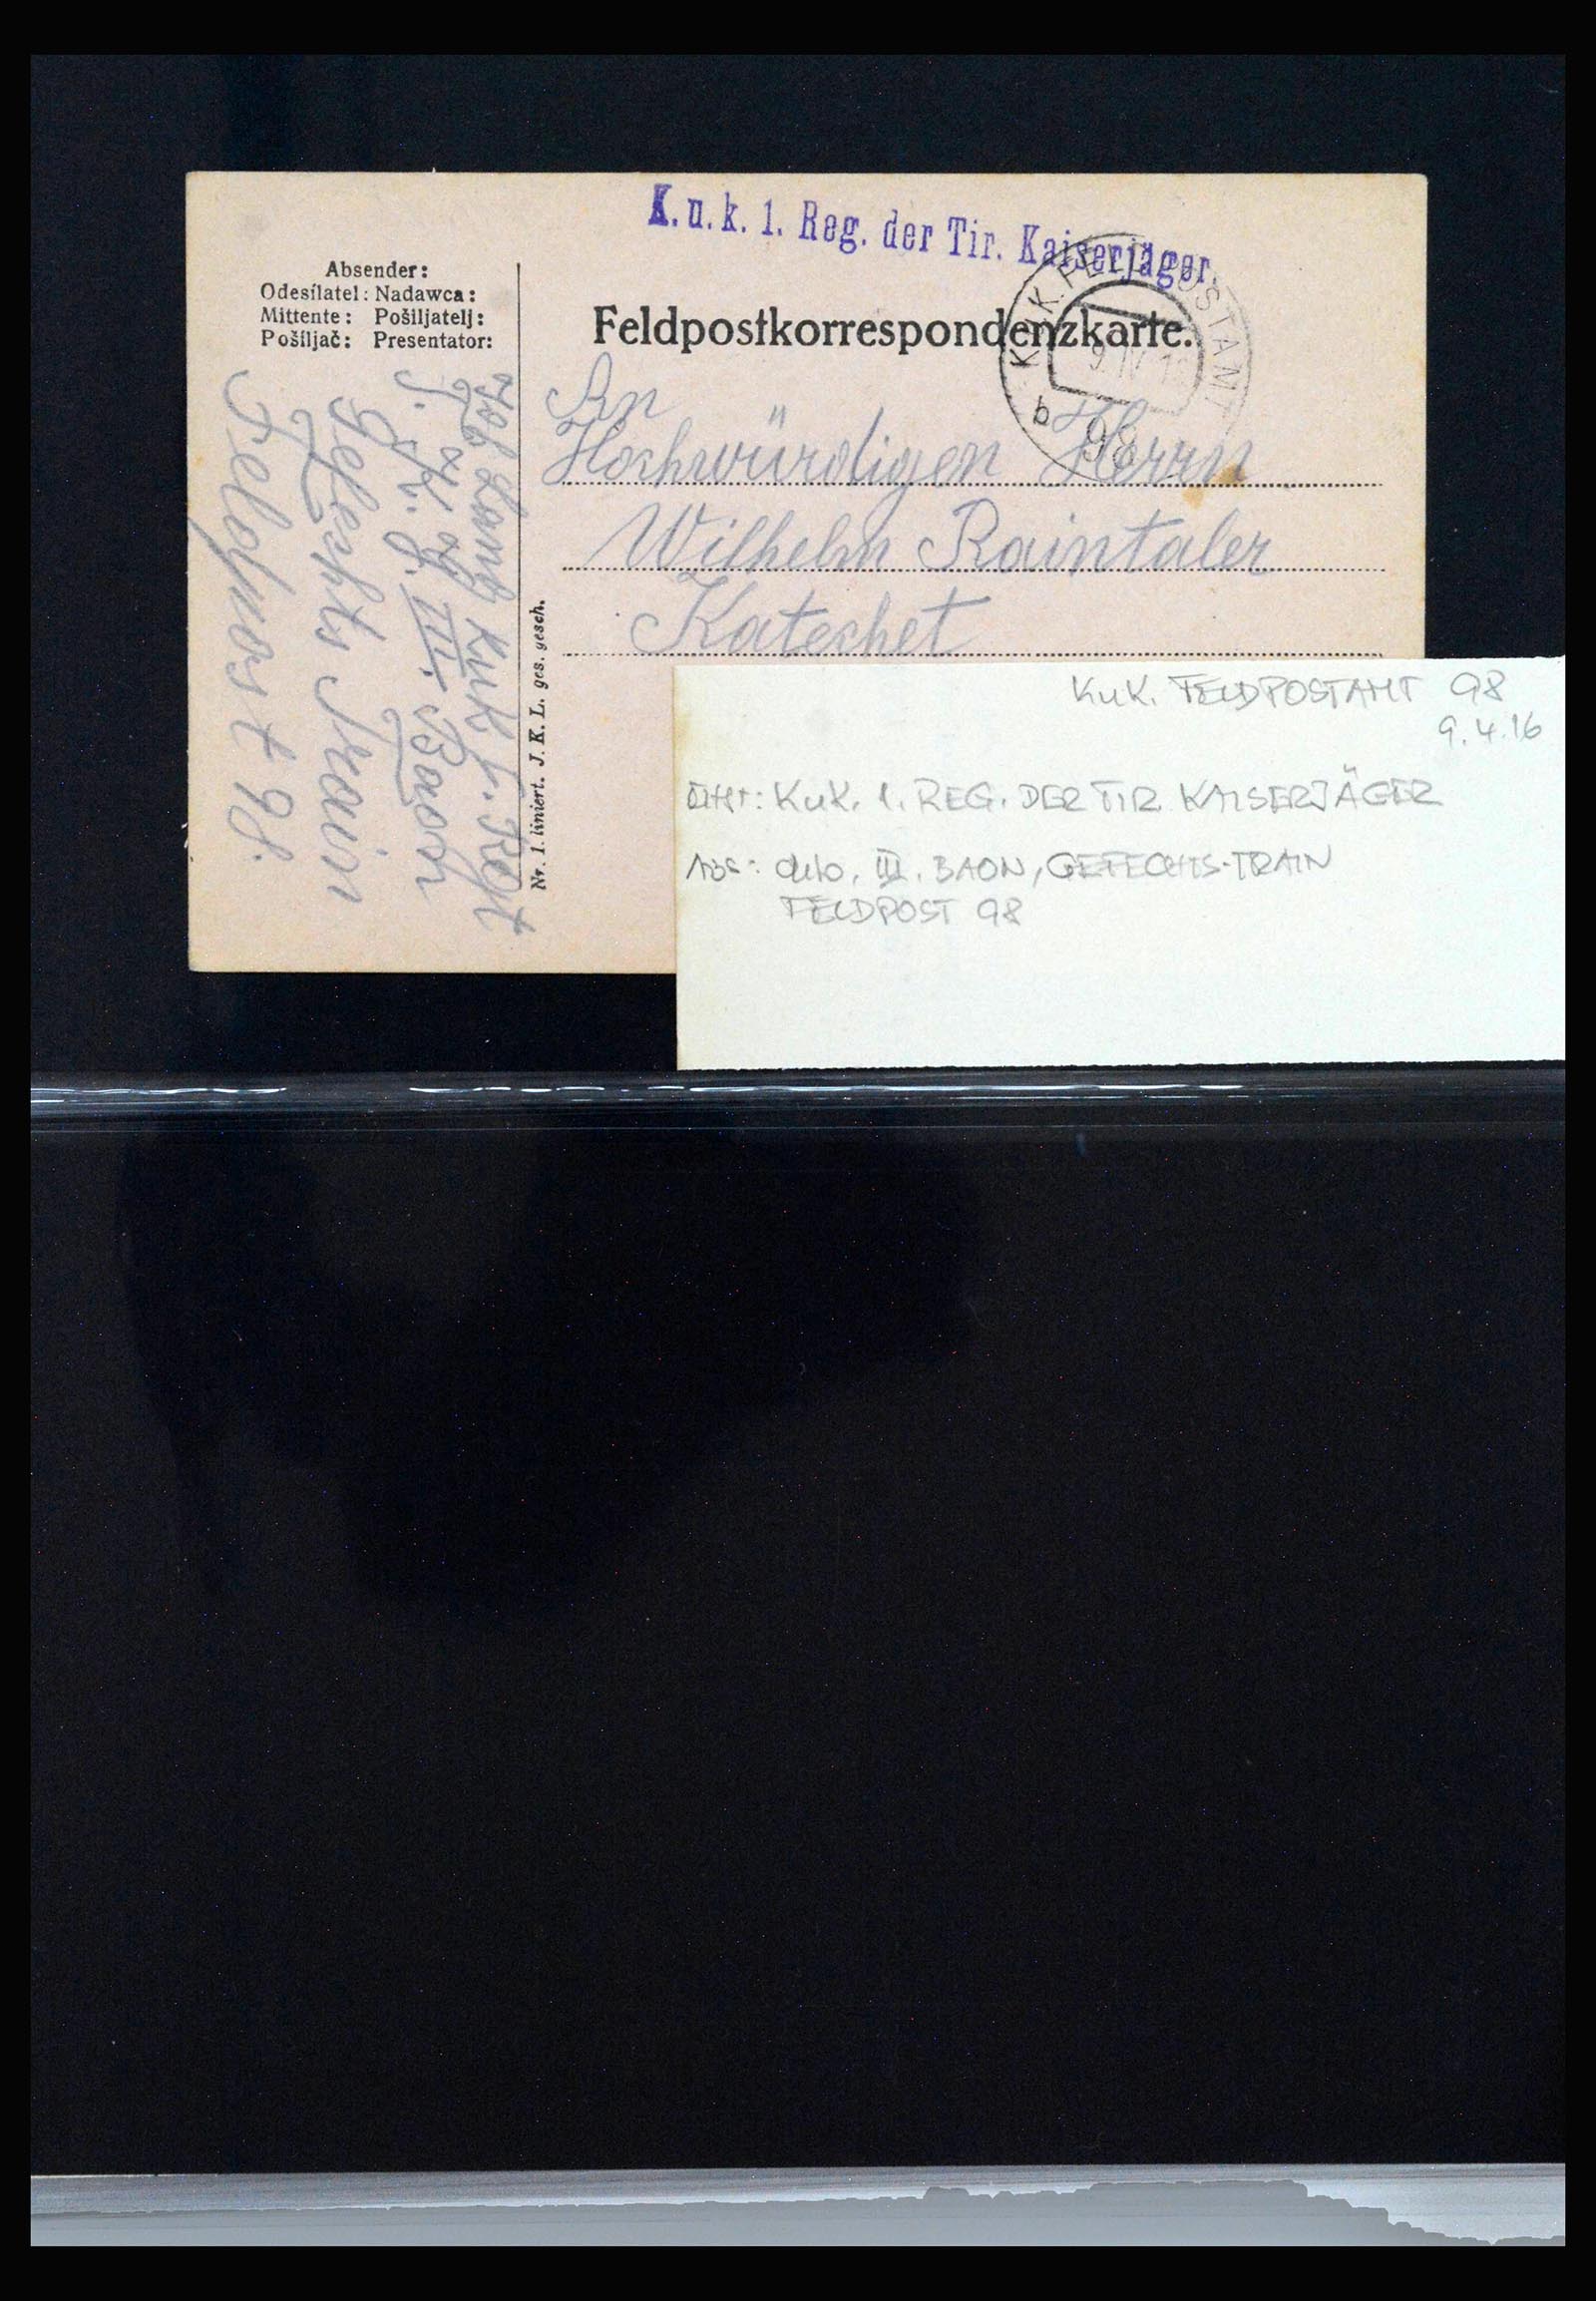 K.u.k. 1. Reg. der Tir. Kaiserjäger.
Absender:
Odesílatel: Nadawca:
Mittente: Pošiljatelj:
Pošiljač: Presentator:
Feldpostkorrespondenzkarte.
K.u.K. FELDPOSTAMT
9 IV 1
b 98
An
Hochwürdigen Herrn
Wilhelm Raintaler
Katechet
KuK. 1. Regt
III. Baon
Gefechts Train
Feldpost 98.
Nr. 1. liniert. J. K. L. ges. gesch.
KuK. FELDPOSTAMT 98
9.4.16
KuK. 1. REG. DER TIR. KAISERJÄGER
Abs: dto, III. BAON, GEFECHTS-TRAIN
FELDPOST 98